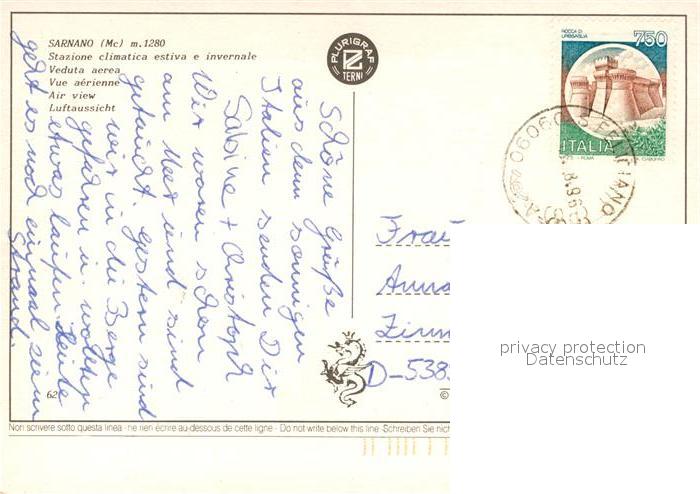 SARNANO (Mc) m.1280
Stazione climatica estiva e invernale
Veduta aerea
Vue aérienne
Air view
Luftaussicht
PLURIGRAF
TERNI
ROCCA DI URBISAGLIA
750
ITALIA
06060 S. FELICIANO
8.96
Schöne Grüße
aus dem sonnigen
Italien senden Dir
Sabine + Christoph
Wir waren schon
am Meer und sind
getaucht. Gestern sind
wir in die Berge
gefahren u. wollten
etwas laufen. Heute
geht es noch einmal zum
Strand.
Frau
Anna
D-538
62
©
Non scrivere sotto questa linea - ne rien écrire au-dessous de cette ligne - Do not write below this line - Schreiben Sie nich
privacy protection
Datenschutz